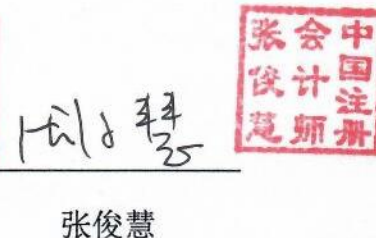 中国注册
会计师
张俊慧
张俊慧